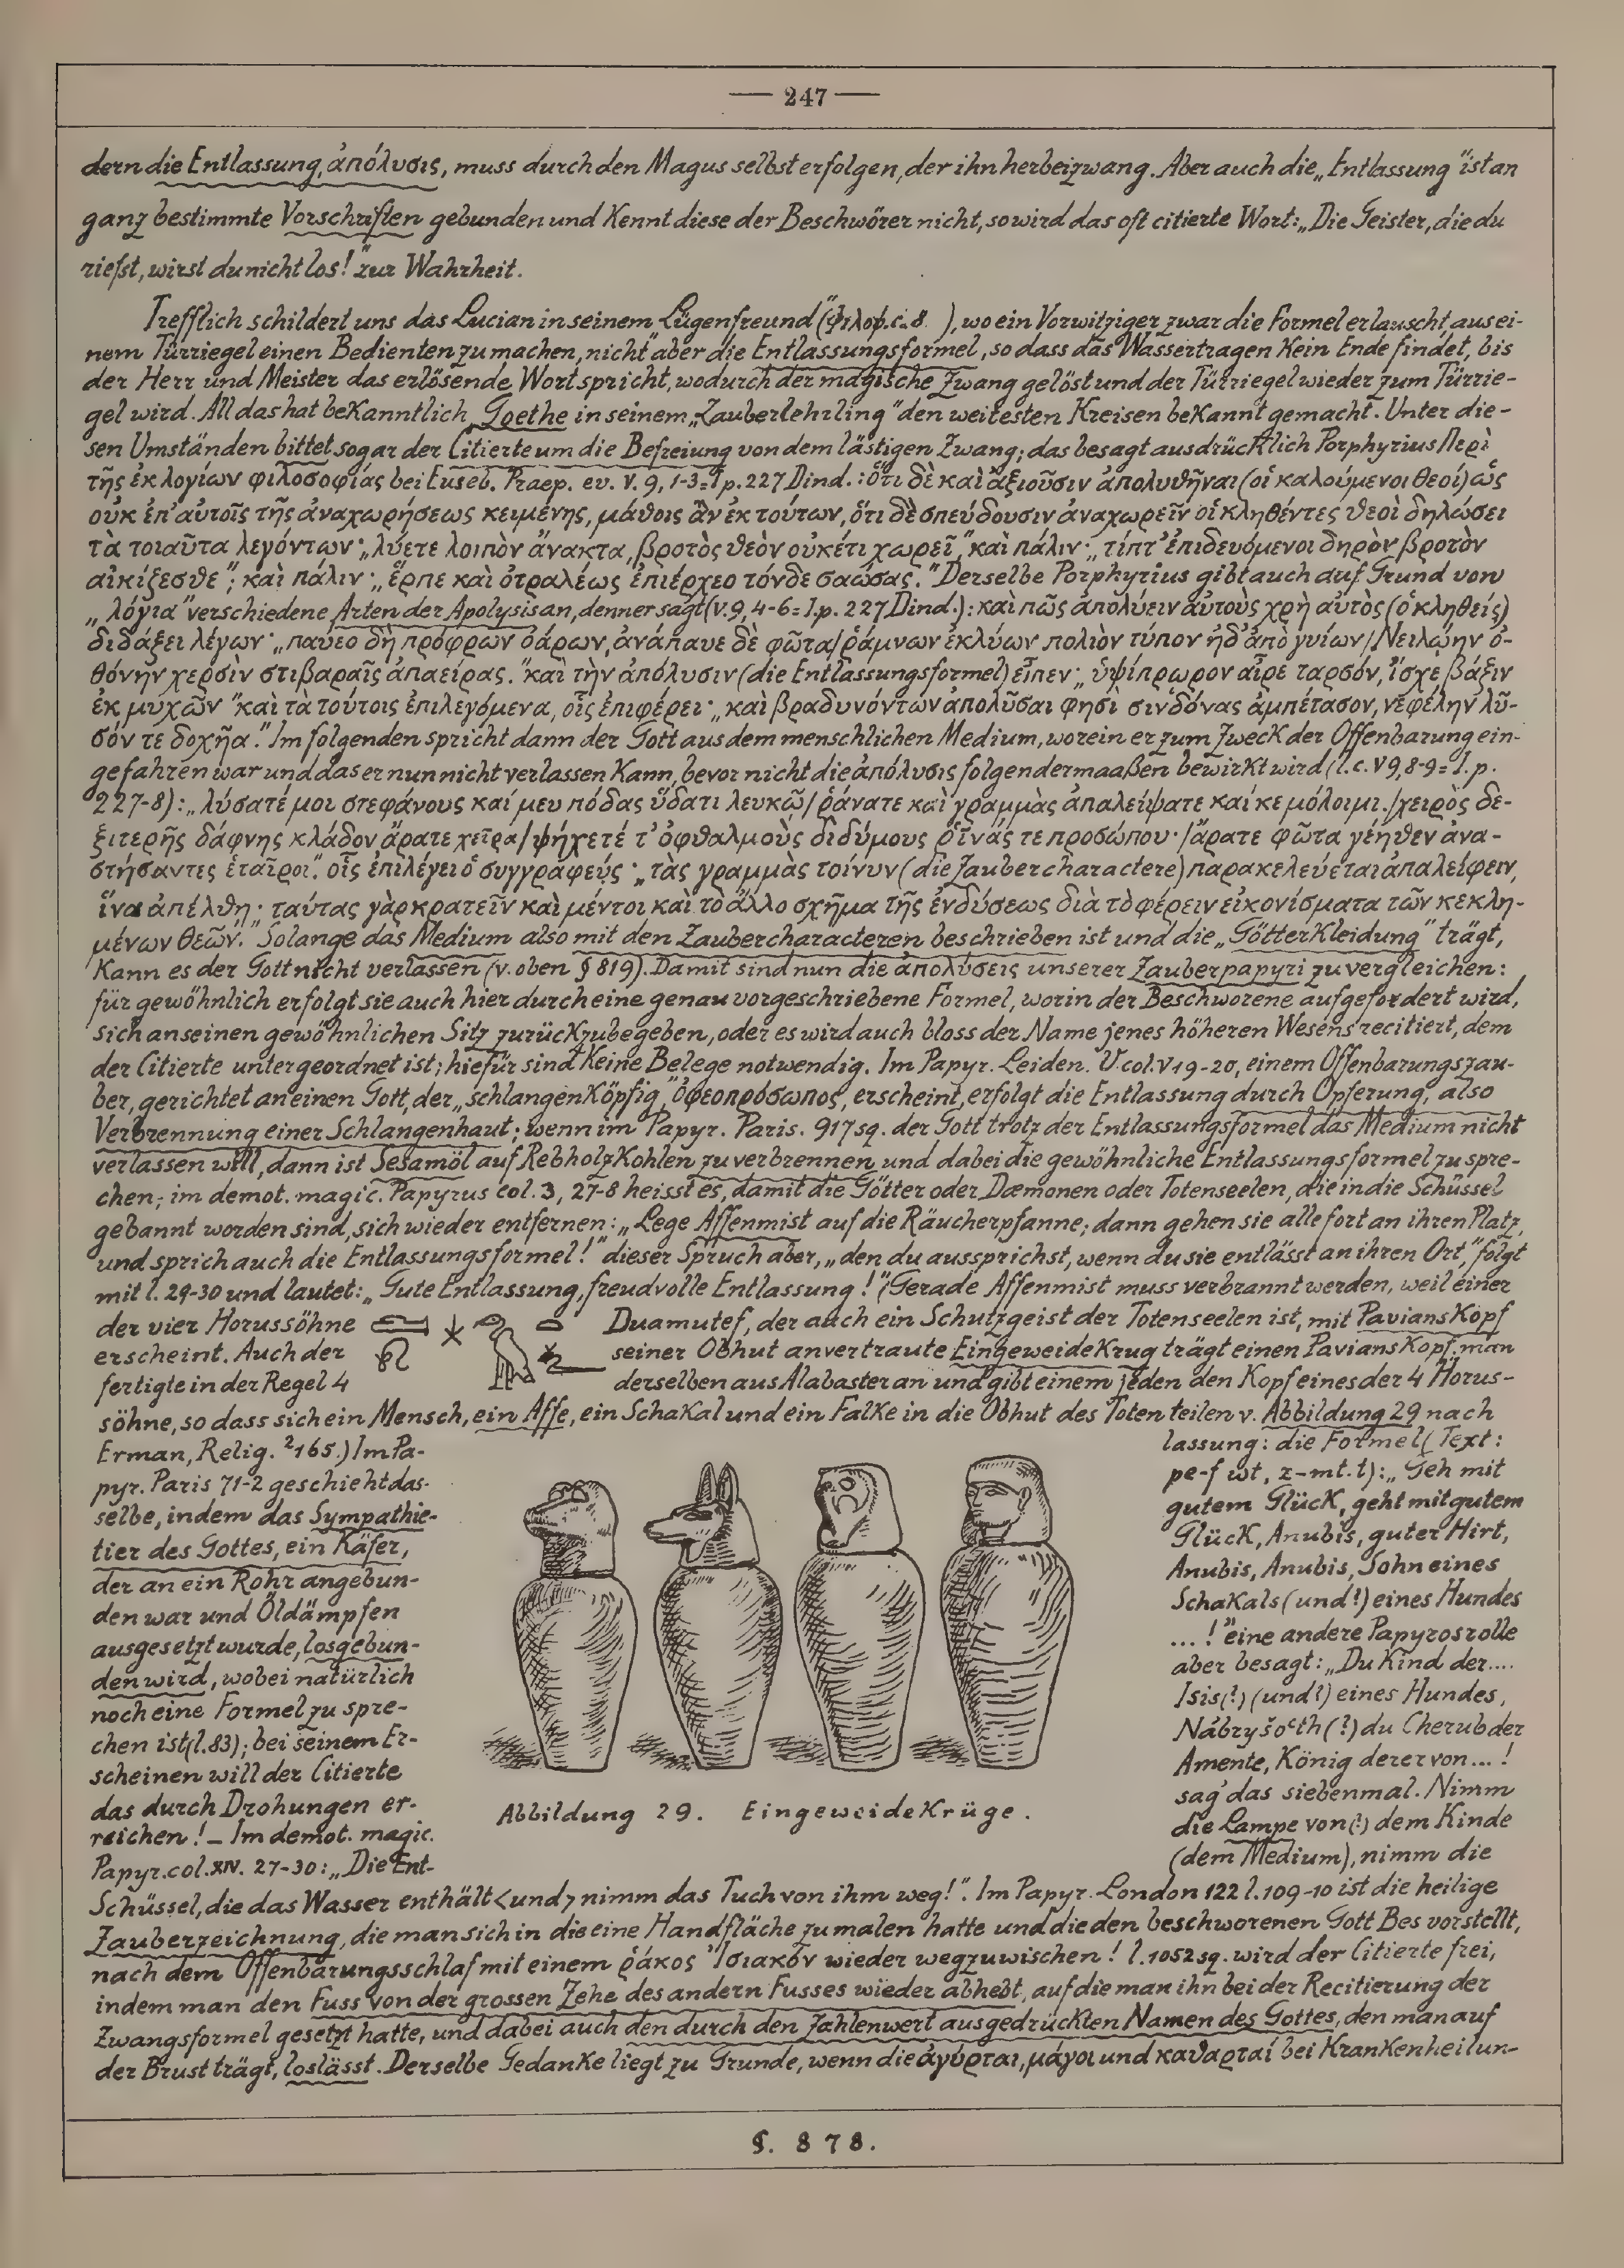 — 247 —
dern die Entlassung, ἀπόλυσις, muss durch den Magus selbst erfolgen, der ihn herbeizwang. Aber auch die „Entlassung" ist an
ganz bestimmte Vorschriften gebunden und kennt diese der Beschwörer nicht, so wird das oft citierte Wort: „Die Geister, die du
riefst, wirst du nicht los!" zur Wahrheit.
Trefflich schildert uns das Lucian in seinem „Lügenfreund" (Φιλοψ. c. 8 ), wo ein Vorwitziger zwar die Formel erlauscht aus ei-
nem Türriegel einen Bedienten zu machen, nicht aber die Entlassungsformel, so dass das Wassertragen kein Ende findet, bis
der Herr und Meister das erlösende Wort spricht, wodurch der magische Zwang gelöst und der Türriegel wieder zum Türrie-
gel wird. All das hat bekanntlich Goethe in seinem „Zauberlehrling" den weitesten Kreisen bekannt gemacht. Unter die-
sen Umständen bittet sogar der Citierte um die Befreiung von dem lästigen Zwang; das besagt ausdrücklich Porphyrius Περὶ
τῆς ἐκ λογίων φιλοσοφίας bei Euseb. Praep. ev. V. 9, 1-3 = I p. 227 Dind.: ὅτι δὲ καὶ ἀξιοῦσιν ἀπολυθῆναι (οἱ καλούμενοι θεοί) ὡς
οὐκ ἐπ' αὐτοῖς τῆς ἀναχωρήσεως κειμένης, μάθοις ἂν ἐκ τούτων, ὅτι δὲ σπεύδουσιν ἀναχωρεῖν οἱ κληθέντες θεοὶ δηλώσει
τὰ τοιαῦτα λεγόντων· „λύετε λοιπὸν ἄνακτα, βροτὸς θεὸν οὐκέτι χωρεῖ," καὶ πάλιν· „τίπτ' ἐπιδευόμενοι δηρὸν βροτὸν
αἰκίζεσθε"; καὶ πάλιν· „ἕρπε καὶ ὀτραλέως ἐπιέρχεο τόνδε σαώσας." Derselbe Porphyrius gibt auch auf Grund von
„λόγια" verschiedene Arten der Apolysis an, denn er sagt (V. 9, 4-6 = I. p. 227 Dind.): καὶ πῶς ἀπολύειν αὐτοὺς χρὴ αὐτὸς (ὁ κληθείς)
διδάξει λέγων· „παύεο δὴ πρόφρων ὀάρων, ἀνάπαυε δὲ φῶτα / ῥάμνων ἐκλύων πολιὸν τύπον ἠδ' ἀπὸ γυίων / Νειλῴην ὀ-
θόνην χερσὶν στιβαραῖς ἀπαείρας." καὶ τὴν ἀπόλυσιν (die Entlassungsformel) εἶπεν· „ὑψίπρωρον αἶρε ταρσόν, ἴσχε βάξιν
ἐκ μυχῶν" καὶ τὰ τούτοις ἐπιλεγόμενα, οἷς ἐπιφέρει· „καὶ βραδυνόντων ἀπολῦσαι φησὶ σινδόνας ἀμπέτασον, νεφέλην λῦ-
σόν τε δοχῆα." Im folgenden spricht dann der Gott aus dem menschlichen Medium, worein er zum Zweck der Offenbarung ein-
gefahren war und das er nun nicht verlassen kann, bevor nicht die ἀπόλυσις folgendermaaßen bewirkt wird (l. c. V 9, 8-9 = I. p.
227-8): „λύσατέ μοι στεφάνους καί μευ πόδας ὕδατι λευκῷ / ῥάνατε καὶ γραμμὰς ἀπαλείψατε καί κε μόλοιμι. / χειρὸς δε-
ξιτερῆς δάφνης κλάδον ἄρατε χεῖρα / ψήχετέ τ' ὀφθαλμοὺς διδύμους ῥῖνάς τε προσώπου· / ἄρατε φῶτα γέηθεν ἀνα-
στήσαντες ἑταῖροι". οἷς ἐπιλέγει ὁ συγγραφεύς· „τὰς γραμμὰς τοίνυν (die Zaubercharactere) παρακελεύεται ἀπαλείφειν,
ἵνα ἀπέλθῃ· ταύτας γὰρ κρατεῖν καὶ μέντοι καὶ τὸ ἄλλο σχῆμα τῆς ἐνδύσεως διὰ τὸ φέρειν εἰκονίσματα τῶν κεκλη-
μένων θεῶν." Solange das Medium also mit den Zaubercharacteren beschrieben ist und die „Götterkleidung" trägt,
kann es der Gott nicht verlassen (v. oben § 819). Damit sind nun die ἀπολύσεις unserer Zauberpapyri zu vergleichen:
für gewöhnlich erfolgt sie auch hier durch eine genau vorgeschriebene Formel, worin der Beschworene aufgefordert wird,
sich an seinen gewöhnlichen Sitz zurückzubegeben, oder es wird auch bloss der Name jenes höheren Wesens recitiert, dem
der Citierte untergeordnet ist; hiefür sind keine Belege notwendig. Im Papyr. Leiden. V. col. V 19-20, einem Offenbarungszau-
ber, gerichtet an einen Gott, der „schlangenköpfig", ὀφεοπρόσωπος, erscheint, erfolgt die Entlassung durch Opferung, also
Verbrennung einer Schlangenhaut; wenn im Papyr. Paris. 917 sq. der Gott trotz der Entlassungsformel das Medium nicht
verlassen will, dann ist Sesamöl auf Rebholzkohlen zu verbrennen und dabei die gewöhnliche Entlassungsformel zu spre-
chen; im demot. magic. Papyrus col. 3, 27-8 heisst es, damit die Götter oder Dæmonen oder Totenseelen, die in die Schüssel
gebannt worden sind, sich wieder entfernen: „Lege Affenmist auf die Räucherpfanne; dann gehen sie alle fort an ihren Platz,
und sprich auch die Entlassungsformel!" dieser Spruch aber, „den du aussprichst, wenn du sie entlässt an ihren Ort," folgt
mit l. 29-30 und lautet: „Gute Entlassung, freudvolle Entlassung!" (Gerade Affenmist muss verbrannt werden, weil einer
der vier Horussöhne Duamutef, der auch ein Schutzgeist der Totenseelen ist, mit Pavianskopf
erscheint. Auch der seiner Obhut anvertraute Eingeweidekrug trägt einen Pavianskopf. man
fertigte in der Regel 4 derselben aus Alabaster an und gibt einem jeden den Kopf eines der 4 Horus-
söhne, so dass sich ein Mensch, ein Affe, ein Schakal und ein Falke in die Obhut des Toten teilen v. Abbildung 29 nach
Erman, Relig. ²165.) Im Pa-
pyr. Paris 71-2 geschieht das-
selbe, indem das Sympathie-
tier des Gottes, ein Käfer,
der an ein Rohr angebun-
den war und Öldämpfen
ausgesetzt wurde, losgebun-
den wird, wobei natürlich
noch eine Formel zu spre-
chen ist (l. 83); bei seinem Er-
scheinen will der Citierte
das durch Drohungen er-
reichen! – Im demot. magic.
Papyr. col. XIV. 27-30: „Die Ent-
Abbildung 29. Eingeweidekrüge.
lassung: die Formel (Text:
pe-f wt, z-mt. t): „Geh mit
gutem Glück, geht mit gutem
Glück, Anubis, guter Hirt,
Anubis, Anubis, Sohn eines
Schakals (und!) eines Hundes
... !" eine andere Papyrosrolle
aber besagt: „Du Kind der....
Isis(?) (und?) eines Hundes,
Nabryšoᶜth (?) du Cherub der
Amente, König derer von ... !
sag' das siebenmal. Nimm
die Lampe von(?) dem Kinde
(dem Medium), nimm die
Schüssel, die das Wasser enthält <und> nimm das Tuch von ihm weg!". Im Papyr. London 122 l. 109-10 ist die heilige
Zauberzeichnung, die man sich in die eine Handfläche zu malen hatte und die den beschworenen Gott Bes vorstellt,
nach dem Offenbarungsschlaf mit einem ῥάκος Ἰσιακόν wieder wegzuwischen! l. 1052 sq. wird der Citierte frei,
indem man den Fuss von der grossen Zehe des andern Fusses wieder abhebt, auf die man ihn bei der Recitierung der
Zwangsformel gesetzt hatte, und dabei auch den durch den Zahlenwert ausgedrückten Namen des Gottes, den man auf
der Brust trägt, loslässt. Derselbe Gedanke liegt zu Grunde, wenn die ἀγύρται, μάγοι und καθαρταί bei Krankenheilun-
§. 878.